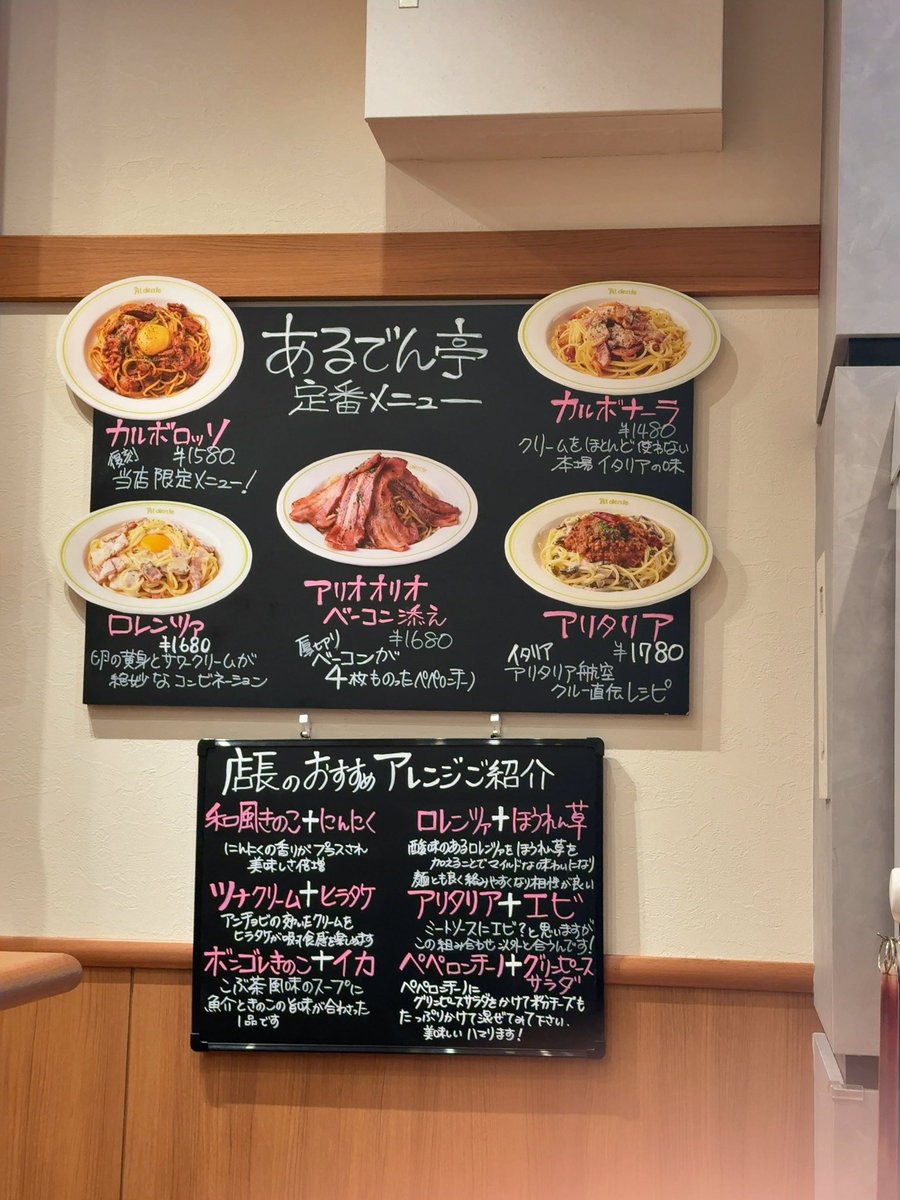 あるでん亭
定番メニュー
Al dente
カルボロッソ
復刻 ¥1580
当店限定メニュー!
Al dente
カルボナーラ
¥1480
クリームをほとんど使わない
本場イタリアの味
Al dente
アリオオリオ
ベーコン添え
¥1680
厚切り
ベーコンが
4枚ものったペペロンチーノ
Al dente
ロレンツァ
¥1680
卵の黄身とサワークリームが
絶妙なコンビネーション
Al dente
アリタリア
イタリア ¥1780
アリタリア航空
クルー直伝レシピ
店長のおすすめアレンジご紹介
和風きのこ+にんにく
にんにくの香りがプラスされ
美味しさ倍増
ツナクリーム+ヒラタケ
アンチョビの効いたクリームを
ヒラタケが吸って食感を楽しめます
ボンゴレきのこ+イカ
こぶ茶風味のスープに
魚介ときのこの旨味が合わさった
1品です
ロレンツァ+ほうれん草
酸味のあるロレンツァをほうれん草を
加えることでマイルドな味わいになり
麺とも良く絡みやすくなり相性が良い
アリタリア+エビ
ミートソースにエビ?と思いますが
この組み合わせ以外と合うんです!
ペペロンチーノ+グリーンピース
サラダ
ペペロンチーノに
グリンピースサラダをかけて粉チーズも
たっぷりかけて混ぜてみて下さい、
美味しいハマります!